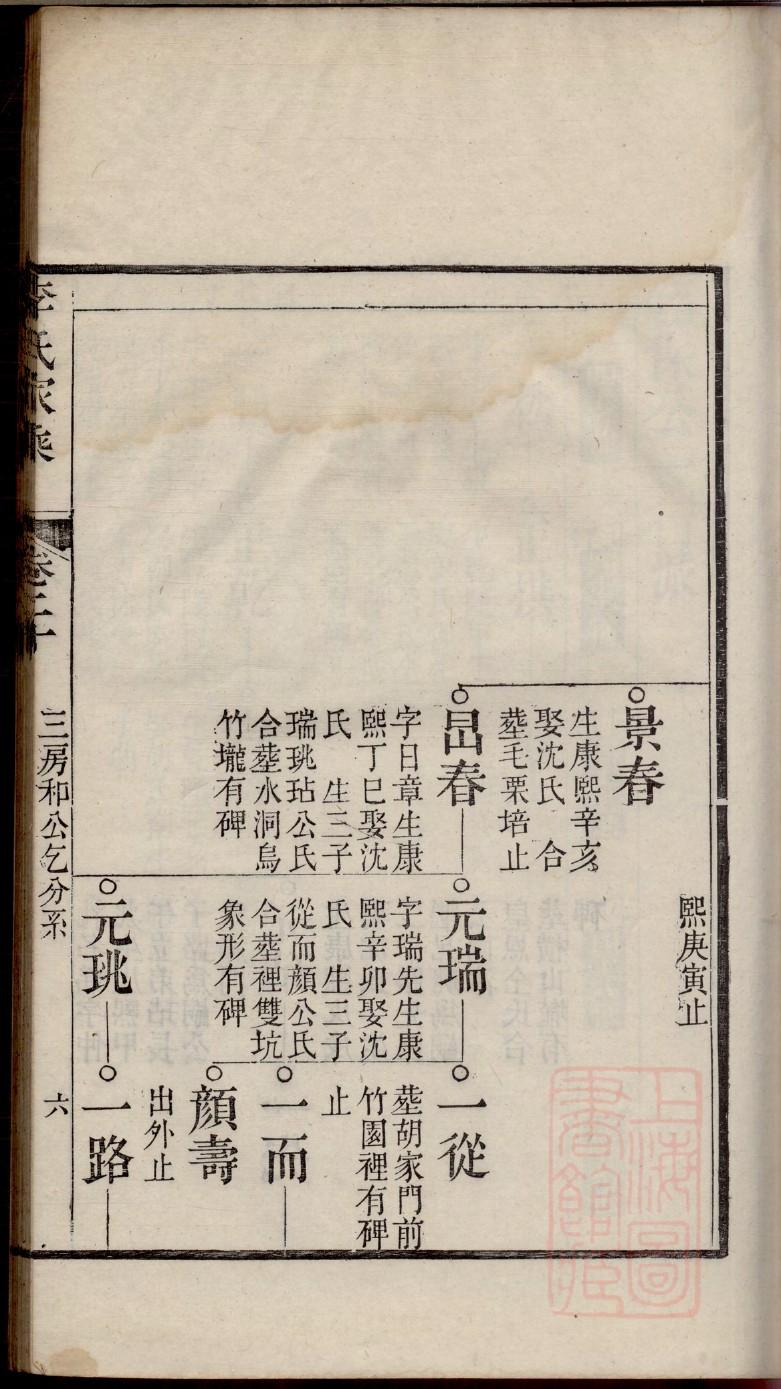 熙庚寅止
景春
生康熙辛亥
娶沈氏 合
塟毛栗培止
昌春
字日章生康
熙丁巳娶沈
氏 生三子
瑞珧玷公氏
合塟水洞烏
竹壠有碑
元瑞
字瑞先生康
熙辛卯娶沈
氏 生三子
從而顔公氏
合塟裡雙坑
象形有碑
元珧
一從
塟胡家門前
竹園裡有碑
止
一而
顔壽
出外止
一路
李氏家乘
卷二十
三房和公乞分系
六
上海圖書館藏